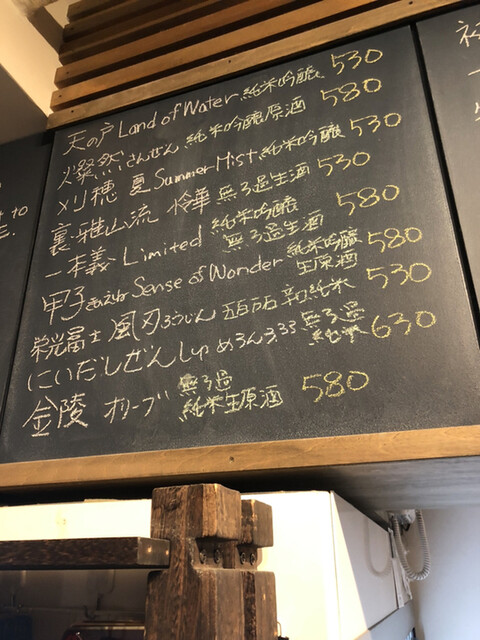 天の戸 Land of Water 純米吟醸 530
燦然 さんぜん 純米吟醸原酒 580
刈穂 夏 Summer Mist 純米吟醸 530
裏・雅山流 怜華 無ろ過生酒 530
一本義 Limited 純米吟醸 無ろ過生酒 580
甲子 きのえね Sense of Wonder 純米吟醸 生原酒 580
栄光冨士 風刃 ふうじん 辛口純米 530
にいだしぜんしゅ めろん3.33 無ろ過 純米 630
金陵 オリーブ 無ろ過 純米生原酒 580
to